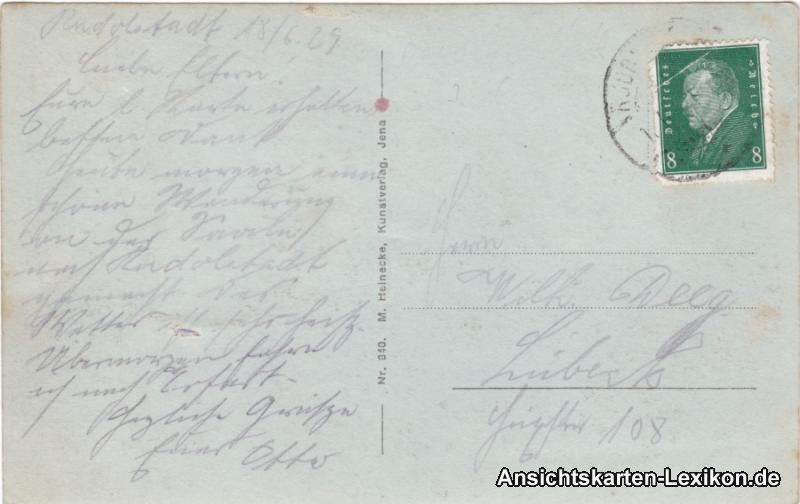 Rudolstadt 18/6.29
Liebe Eltern!
Eure l. Karte erhalten
besten Dank
Heute morgen eine
schöne Wanderung
an der Saale
nach Rudolstadt
gemacht. Das
Wetter ist sehr
Übermorgen fahre
ich nach Erfurt.
Herzliche Grüsse
Euer Otto
Nr. 840. M. Heinecke, Kunstverlag, Jena
Deutsches Reich
8 8
Herrn
Willi Deeg
Lübeck
108
Ansichtskarten-Lexikon.de